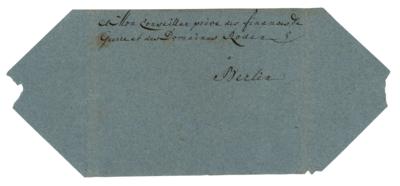 A Mon Conseiller privé des finances de
Guerre et des Domaines Roden
à
Berlin